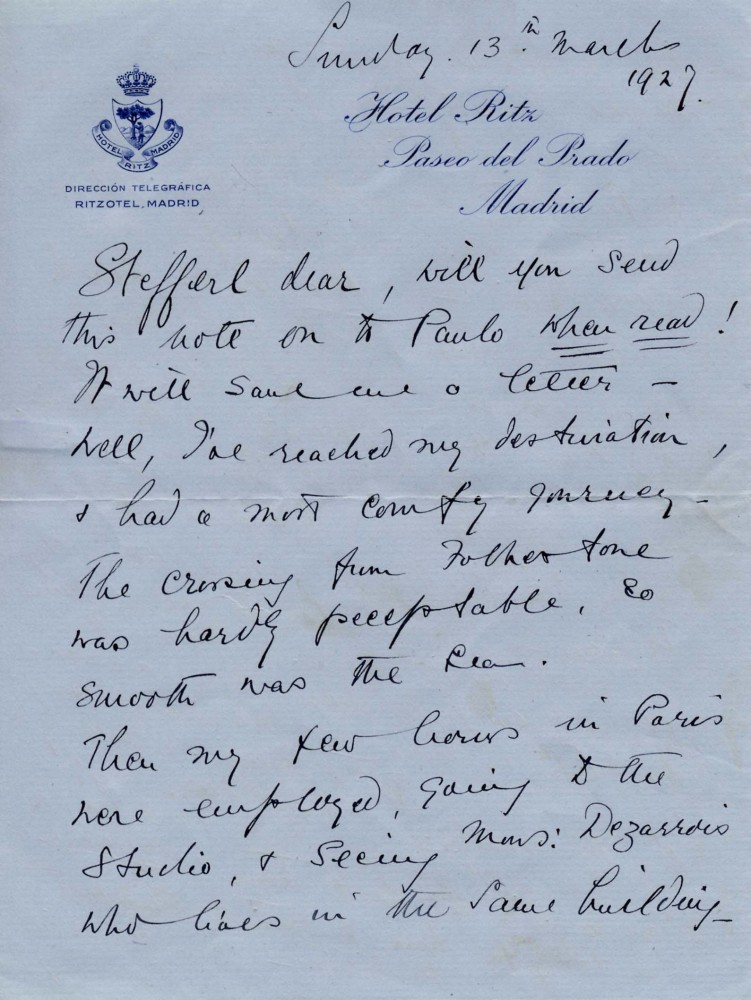 Sunday. 13th March
1927.
HOTEL RITZ MADRID
DIRECCIÓN TELEGRÁFICA
RITZOTEL, MADRID
Hotel Ritz
Paseo del Prado
Madrid
Stefferl dear, will you send
this note on to Paulo when read!
It will save me a letter —
Well, I've reached my destination,
& had a most comfy journey —
The crossing from Folkestone
was hardly peceptable, so
smooth was the sea.
Then my few hours in Paris
were employed, going to the
Studio, & seeing Mons: Dezarrois
who lives in the same building —